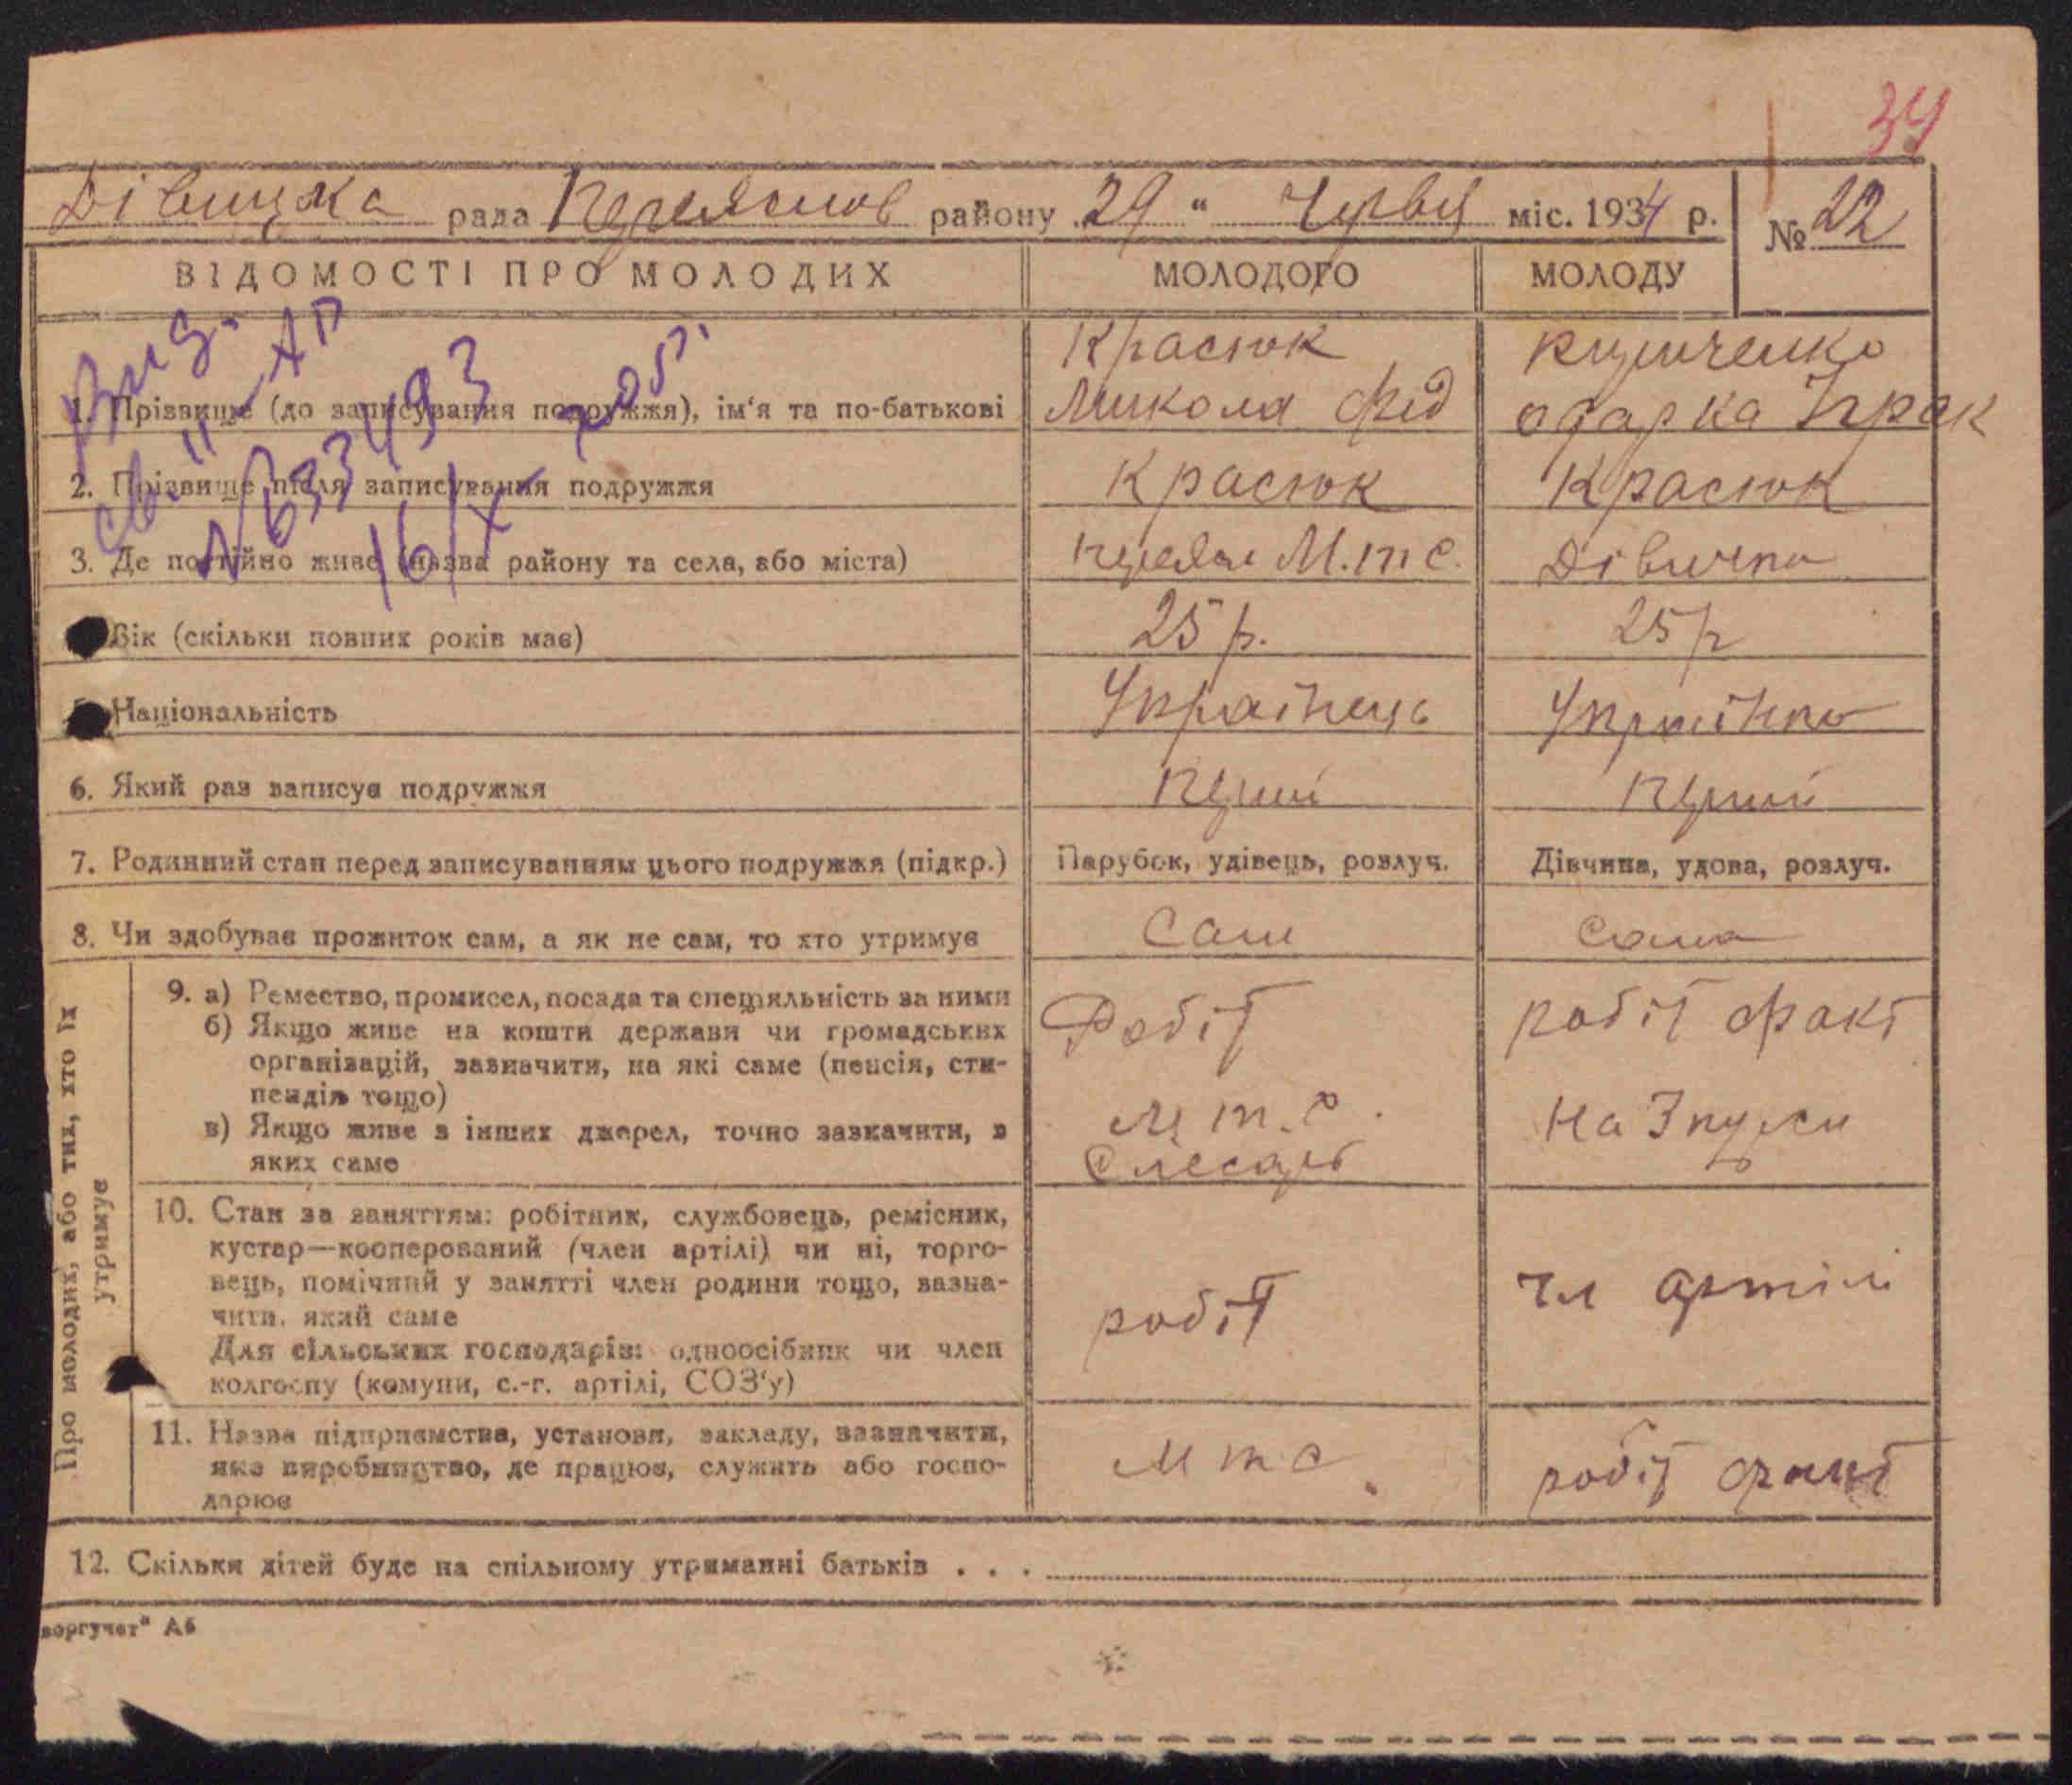 34
Дівицка рада Переяслов району 29 " Червня міс. 1934 р. № 22
ВІДОМОСТІ ПРО МОЛОДИХ МОЛОДОГО МОЛОДУ
Вид.
св. II – АП
№ 633493
16/X –
1. Прізвище (до записування подружжя), ім'я та по-батькові Красюк Микола Фед
Одарка
2. Прізвище після записування подружжя Красюк Красюк
3. Де постійно живе (назва району та села, або міста) Переял М.т.с. Дівички
Вік (скільки повних років має) 25 р. 25 р
Національність Українець Українка
6. Який раз записує подружжя Перший Перший
7. Родинний стан перед записуванням цього подружжя (підкр.) Парубок, удівець, розлуч. Дівчина, удова, розлуч.
8. Чи здобував прожиток сам, а як не сам, то хто утримує Сам Сама
Про молодих, або тих, хто їх утримує
9. а) Ремество, промисел, посада та спеціяльність за ними
б) Якщо живе на кошти держави чи громадських
організацій, зазначити, на які саме (пенсія, сти-
пендія тощо)
в) Якщо живе з інших джерел, точно зазначити, з
яких саме
Робіт
М т. с.
Слесарь
робіт факт
10. Стан за заняттям: робітник, службовець, ремісник,
кустар—кооперований (член артілі) чи ні, торго-
вець, помічний у занятті член родини тощо, зазна-
чити, який саме
Для сільських господарів: одноосібник чи член
колгоспу (комуни, с.-г. артілі, СОЗ'у)
робіт
чл артілі
11. Назва підприємства, установи, закладу, зазначити,
яке виробництво, де працює, служить або госпо-
дарює
М т с
робіт
12. Скільки дітей буде на спільному утриманні батьків . . .
воргучет" А6